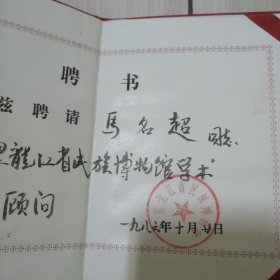 聘书
兹聘请馬名超同志
黑龍江省民族博物馆学术
顾问
一九八六年十月廿日